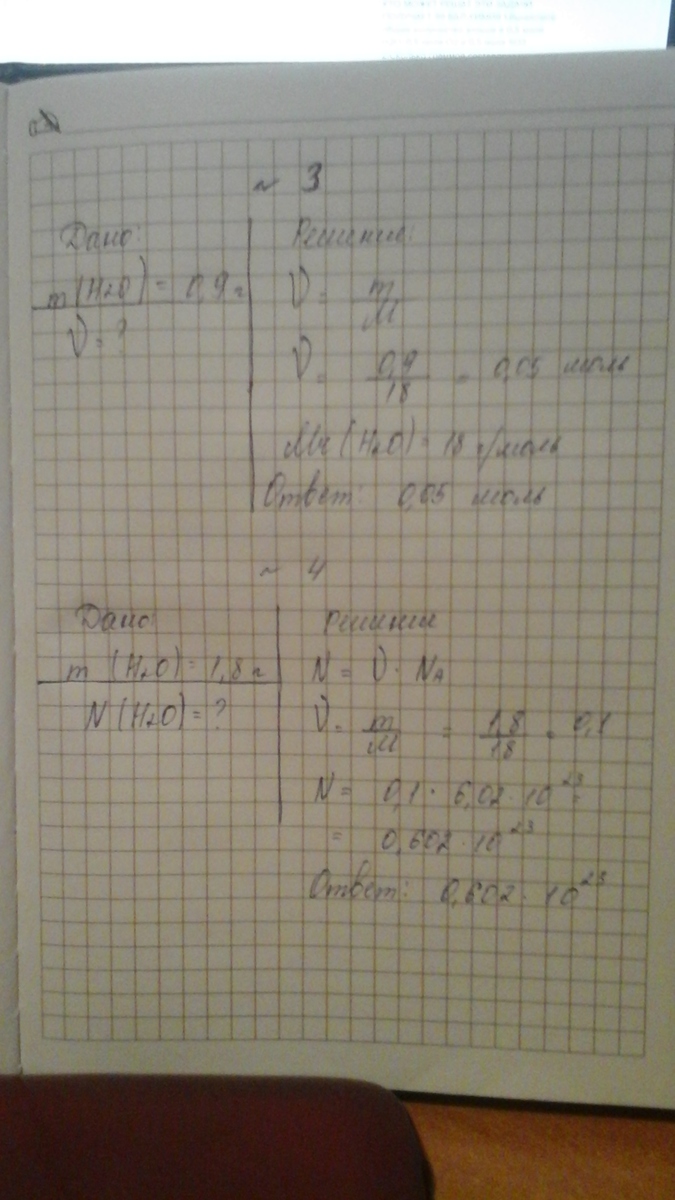 ~ 3
Дано:
m(H₂O) = 0,9 г
ν = ?
Решение:
ν = m/M
ν = 0,9/18 = 0,05 моль
Mr (H₂O) = 18 г/моль
Ответ: 0,05 моль
~ 4
Дано:
m (H₂O) = 1,8 г
N (H₂O) = ?
Решение
N = ν · Nᴀ
ν = m/M = 1,8/18 = 0,1
N = 0,1 · 6,02 · 10²³ =
= 0,602 · 10²³
Ответ: 0,602 · 10²³